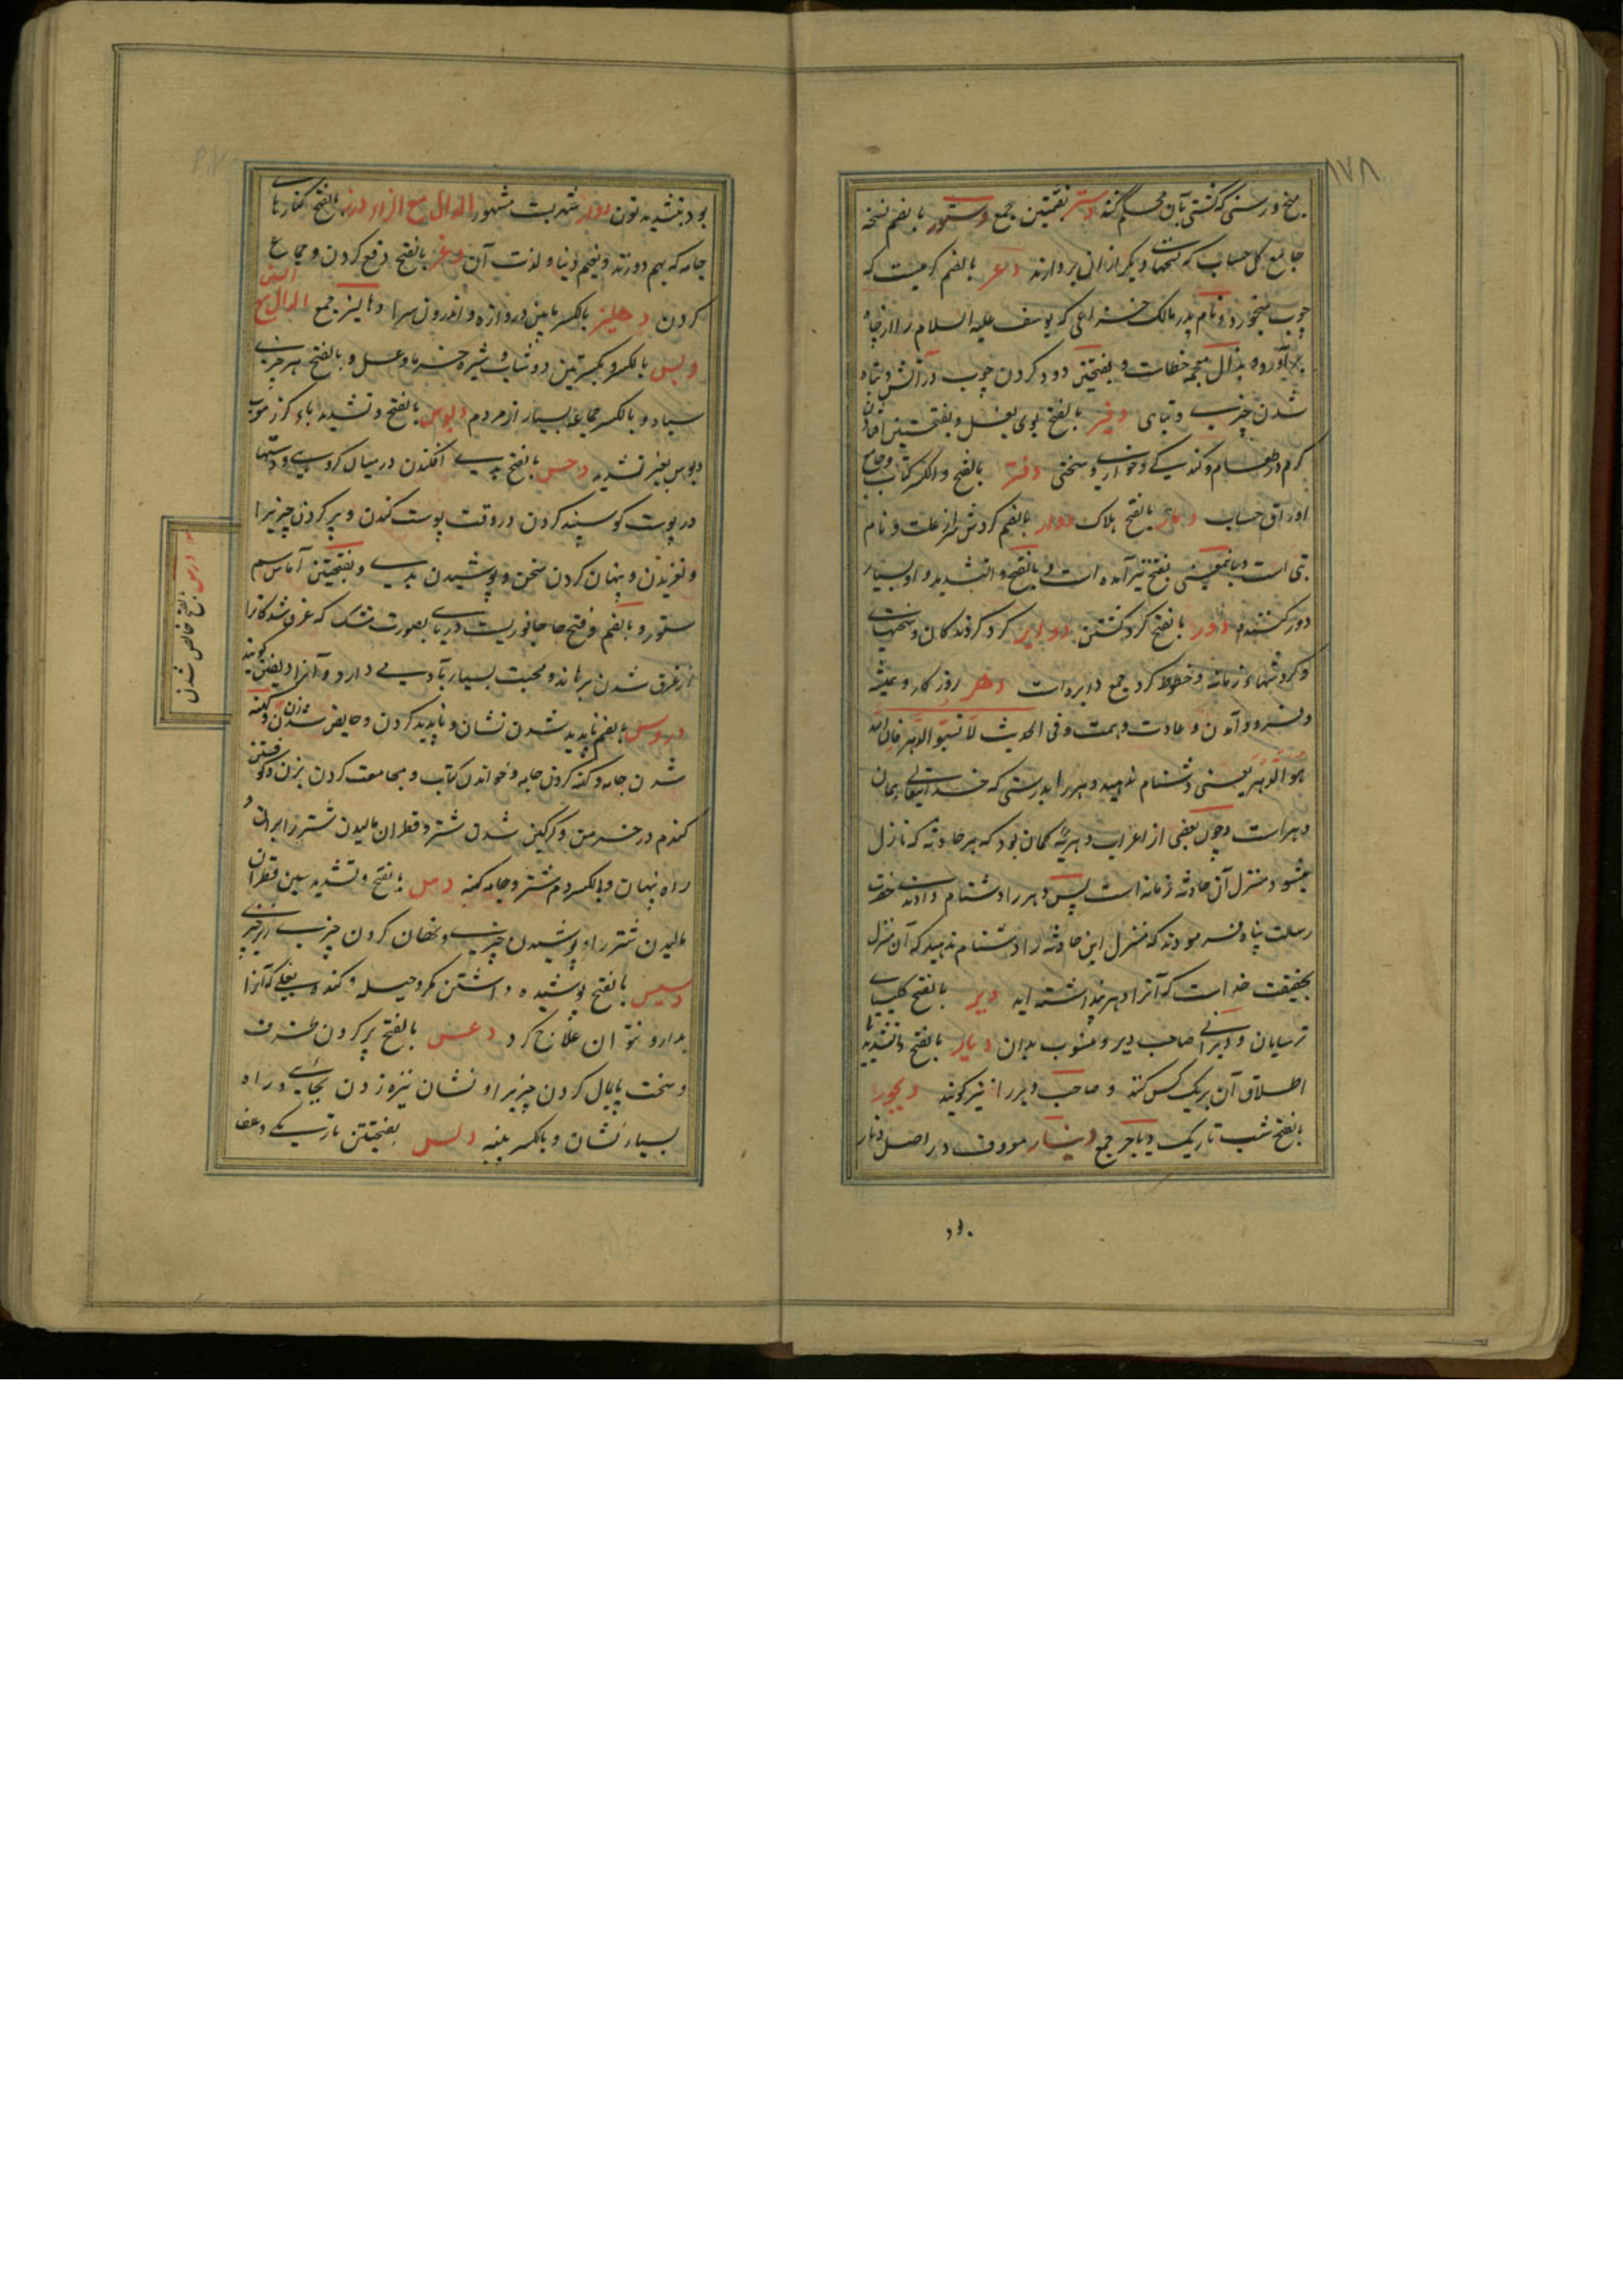 ۱۷۸
میخ و رسنی که کشتی بآن محکم کنند دستر بضمتین جمع دستور بالضم نسخه
جامع کل حساب که نسخهای دیگر از آن بردارند دعر بالضم کرمیست که
چوب میخورد و نام پدر مالک خزاعی که یوسف علیه السلام را از چاه
برآورده و بذال معجمه خطاست و بفتحتین دود کردن چوب در آتش و تباه
شدن چیزی و تباهی دفر بالفتح بوی بغل و بفتحتین افتادن
کرم در طعام و کندیگی و خواری و سختی دفتر بالفتح والکسر کتاب و جامع
اوراق حساب دبار بالفتح هلاک دوار بالضم گردش سر از علت و نام
بتی است و باینمعنی بفتح نیز آمده است و بالفتح والتشدید واو بسیار
دور کننده دور بالفتح کرد کشتن دوایر کرد کردندکان و سختیهای
و کردشهاء زمانه و خطوط کرد جمع دایره است دهر روزکار و همیشه
و فرود آمدن و عادت و همت و فی الحدیث لا تسبوا الدهر فان الله
هو الدهر یعنی دشنام ندهید دهر را بدرستی که خدایتعالی همان
دهر است و چون بعضی از اعراب دهریه گمان بود که هر حادثه که نازل
میشود منزل آن حادثه زمانه است پس دهر را دشنام دادندی حضرت
رسالت پناه فرمودند که منزل این حادثه را دشنام ندهید که آن منزل
بحقیقت خداست که آنرا دهر پنداشته اید دیر بالفتح کلیسیای
ترسایان و دیرانی صاحب دیر و منسوب بدان دیار بالفتح والتشدید یا
اطلاق آن بر یک کس کنند و صاحب دیر را نیز کویند دیجور
بالفتح شب تاریک دیاجر جمع دینار معروف در اصل دنار
بود بتشدید نون دوار شهریست مشهور الدال مع الزاء درز بالفتح کنارهای
جامه که بهم دوزند و نعیم دنیا و لذت آن دعز بالفتح دفع کردن و جماع
کردن دهلیز بالکسر مابین دروازه و اندرون سرا دهالیز جمع الدال مع السین
دبس بالکسر و بکسرتین دوشاب و شیره خرما و عسل و بالفتح هر چیزی
سیاه و بالکسر جماعه بسیار از مردم دبوس بالفتح و تشدید باء کرز معرب
دبوس بغیر تشدید دحس بالفتح بدی افکندن در میان کروهی و دستها
در پوست کوسپند کردن در وقت پوست کندن و پر کردن چیزیرا
و لغزیدن و پنهان کردن سخن و پوشیدن بدی و بفتحتین آماس سم
ستور و بالضم و فتح حا جانوریست دریایی بصورت مشک که غرق شدکانرا
از غرق شدن برهاند و محبت بسیار بآدمی دارد و آنرا دلفین گویند
دروس بالضم ناپدید شدن نشان و ناپدید کردن و حایض شدن زن و کهنه
شدن جامه و کهنه کردن جامه و خواندن کتاب و مجامعت کردن بزن و کوفتن
کندم در خرمن و کرکین شدن شتر و قطران مالیدن شتر را برای آن و
راه پنهان و بالکسر دم شتر و جامه کهنه دس بالفتح و تشدید سین قطران
مالیدن شتر را و پوشیدن چیزی و نهان کردن چیزی زیر چیزی
دسیس بالفتح پوشیده داشتن مکر و حیله و کنده بغلی که آنرا
بدارو نتوان علاج کرد دعس بالفتح پر کردن ظرف
و سخت پایمال کردن چیزیرا و نشان نیزه زدن بجایی و راه
بسیار نشان و بالکسر پنبه دلس بفتحتین تاریکی و عطا
درس بالفتح خالص شدن